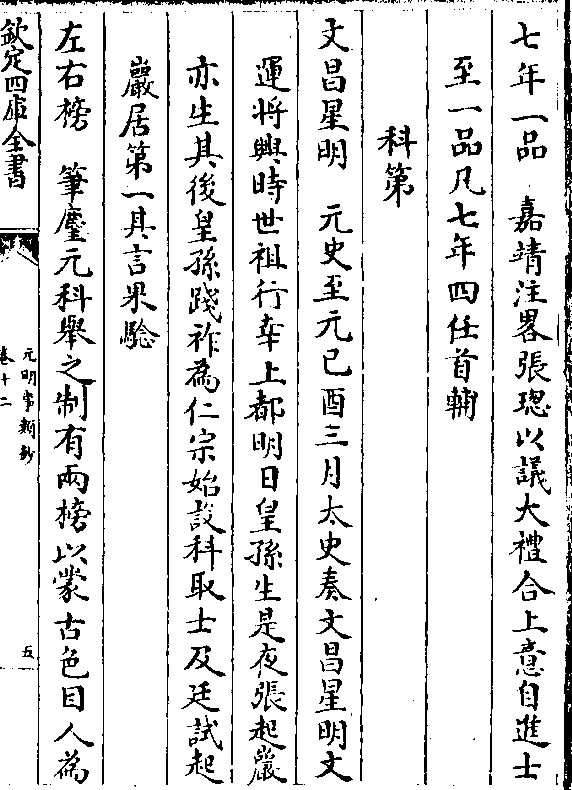 七年一品　嘉靖注畧張璁以議大禮合上意自進士
至一品凡七年四任首輔
科第
文昌星明　元史至元己酉三月太史奏文昌星明文
運将興時世祖行幸上都明日皇孫生是夜張起巖
亦生其後皇孫踐祚為仁宗始設科取士及廷試起
巖居第一其言果驗
左右榜　筆麈元科舉之制有兩榜以蒙古色目人為
欽定四庫全書
元明事類鈔
卷十二
五